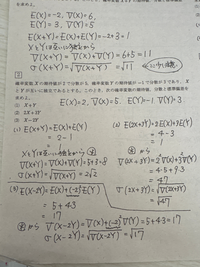 E(X)=-2, V(X)=6,
E(Y)=3, V(Y)=5
E(X+Y)=E(X)+E(Y)=-2+3=1
XとYは互いに独立から
V(X+Y)=V(X)+V(Y)=6+5=11
σ(X+Y)=√V(X+Y)=√11
確率変数 X の期待値が 2 で分散が 5, 確率変数 Y の期待値が -1 で分散が 3 であり, X と
Y が互いに独立であるとする。このとき, 次の確率変数の期待値, 分散と標準偏差を
求めよ。
(1) X+Y
(2) 2X+3Y
(3) X-2Y
E(X)=2, V(X)=5. E(Y)=-1, V(Y)=3
(1) E(X+Y)=E(X)+E(Y)
=2-1
=1
XとYは互いに独立から
V(X+Y)=V(X)+V(Y)=5+3=8
σ(X+Y)=√V(X+Y)=2√2
(2) E(2X+3Y)=2E(X)+3E(Y)
=4-3
=1
から
V(2X+3Y)=2²V(X)+3²V(Y)
=4・5+9・3
=47
σ(2X+3Y)=√V(2X+3Y)
=√47
(3) E(X-2Y)=E(X)+(-2)²E(Y)
=5+43
=17
から V(X-2Y)=V(X)+(-2)²V(Y)=5+43=17
σ(X-2Y)=√V(X-2Y)=√17